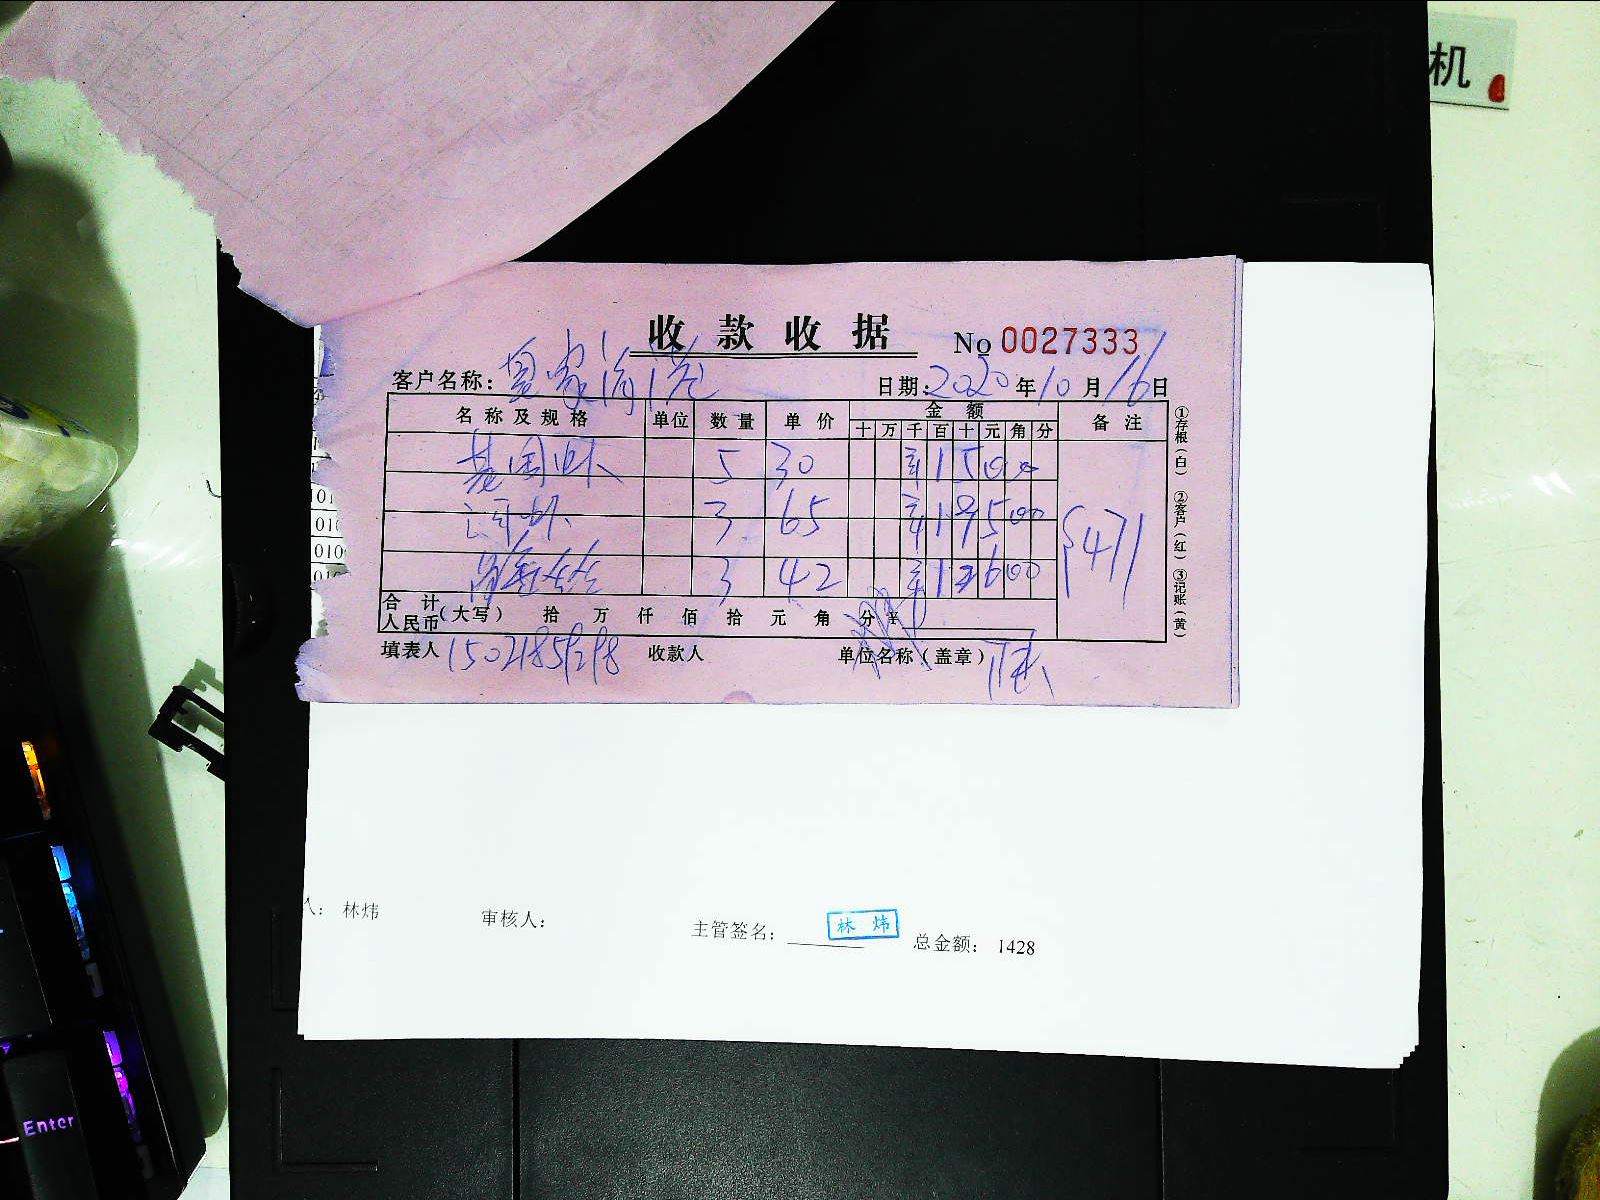 机
收款收据 No 0027333
客户名称: 日期: 2020 年 10 月 16 日
名称及规格 单位 数量 单价 金额 备注
十 万 千 百 十 元 角 分
基围虾 5 30 1 5 0 0 0
河虾 3 65 1 9 5 0 0
3 42 1 2 6 0 0
471
合计人民币(大写) 拾 万 仟 佰 拾 元 角 分 ¥
填表人 收款人 单位名称(盖章)
①存根(白) ②客户(红) ③记账(黄)
010
010
人: 林炜 审核人: 主管签名: 林炜 总金额: 1428
Enter